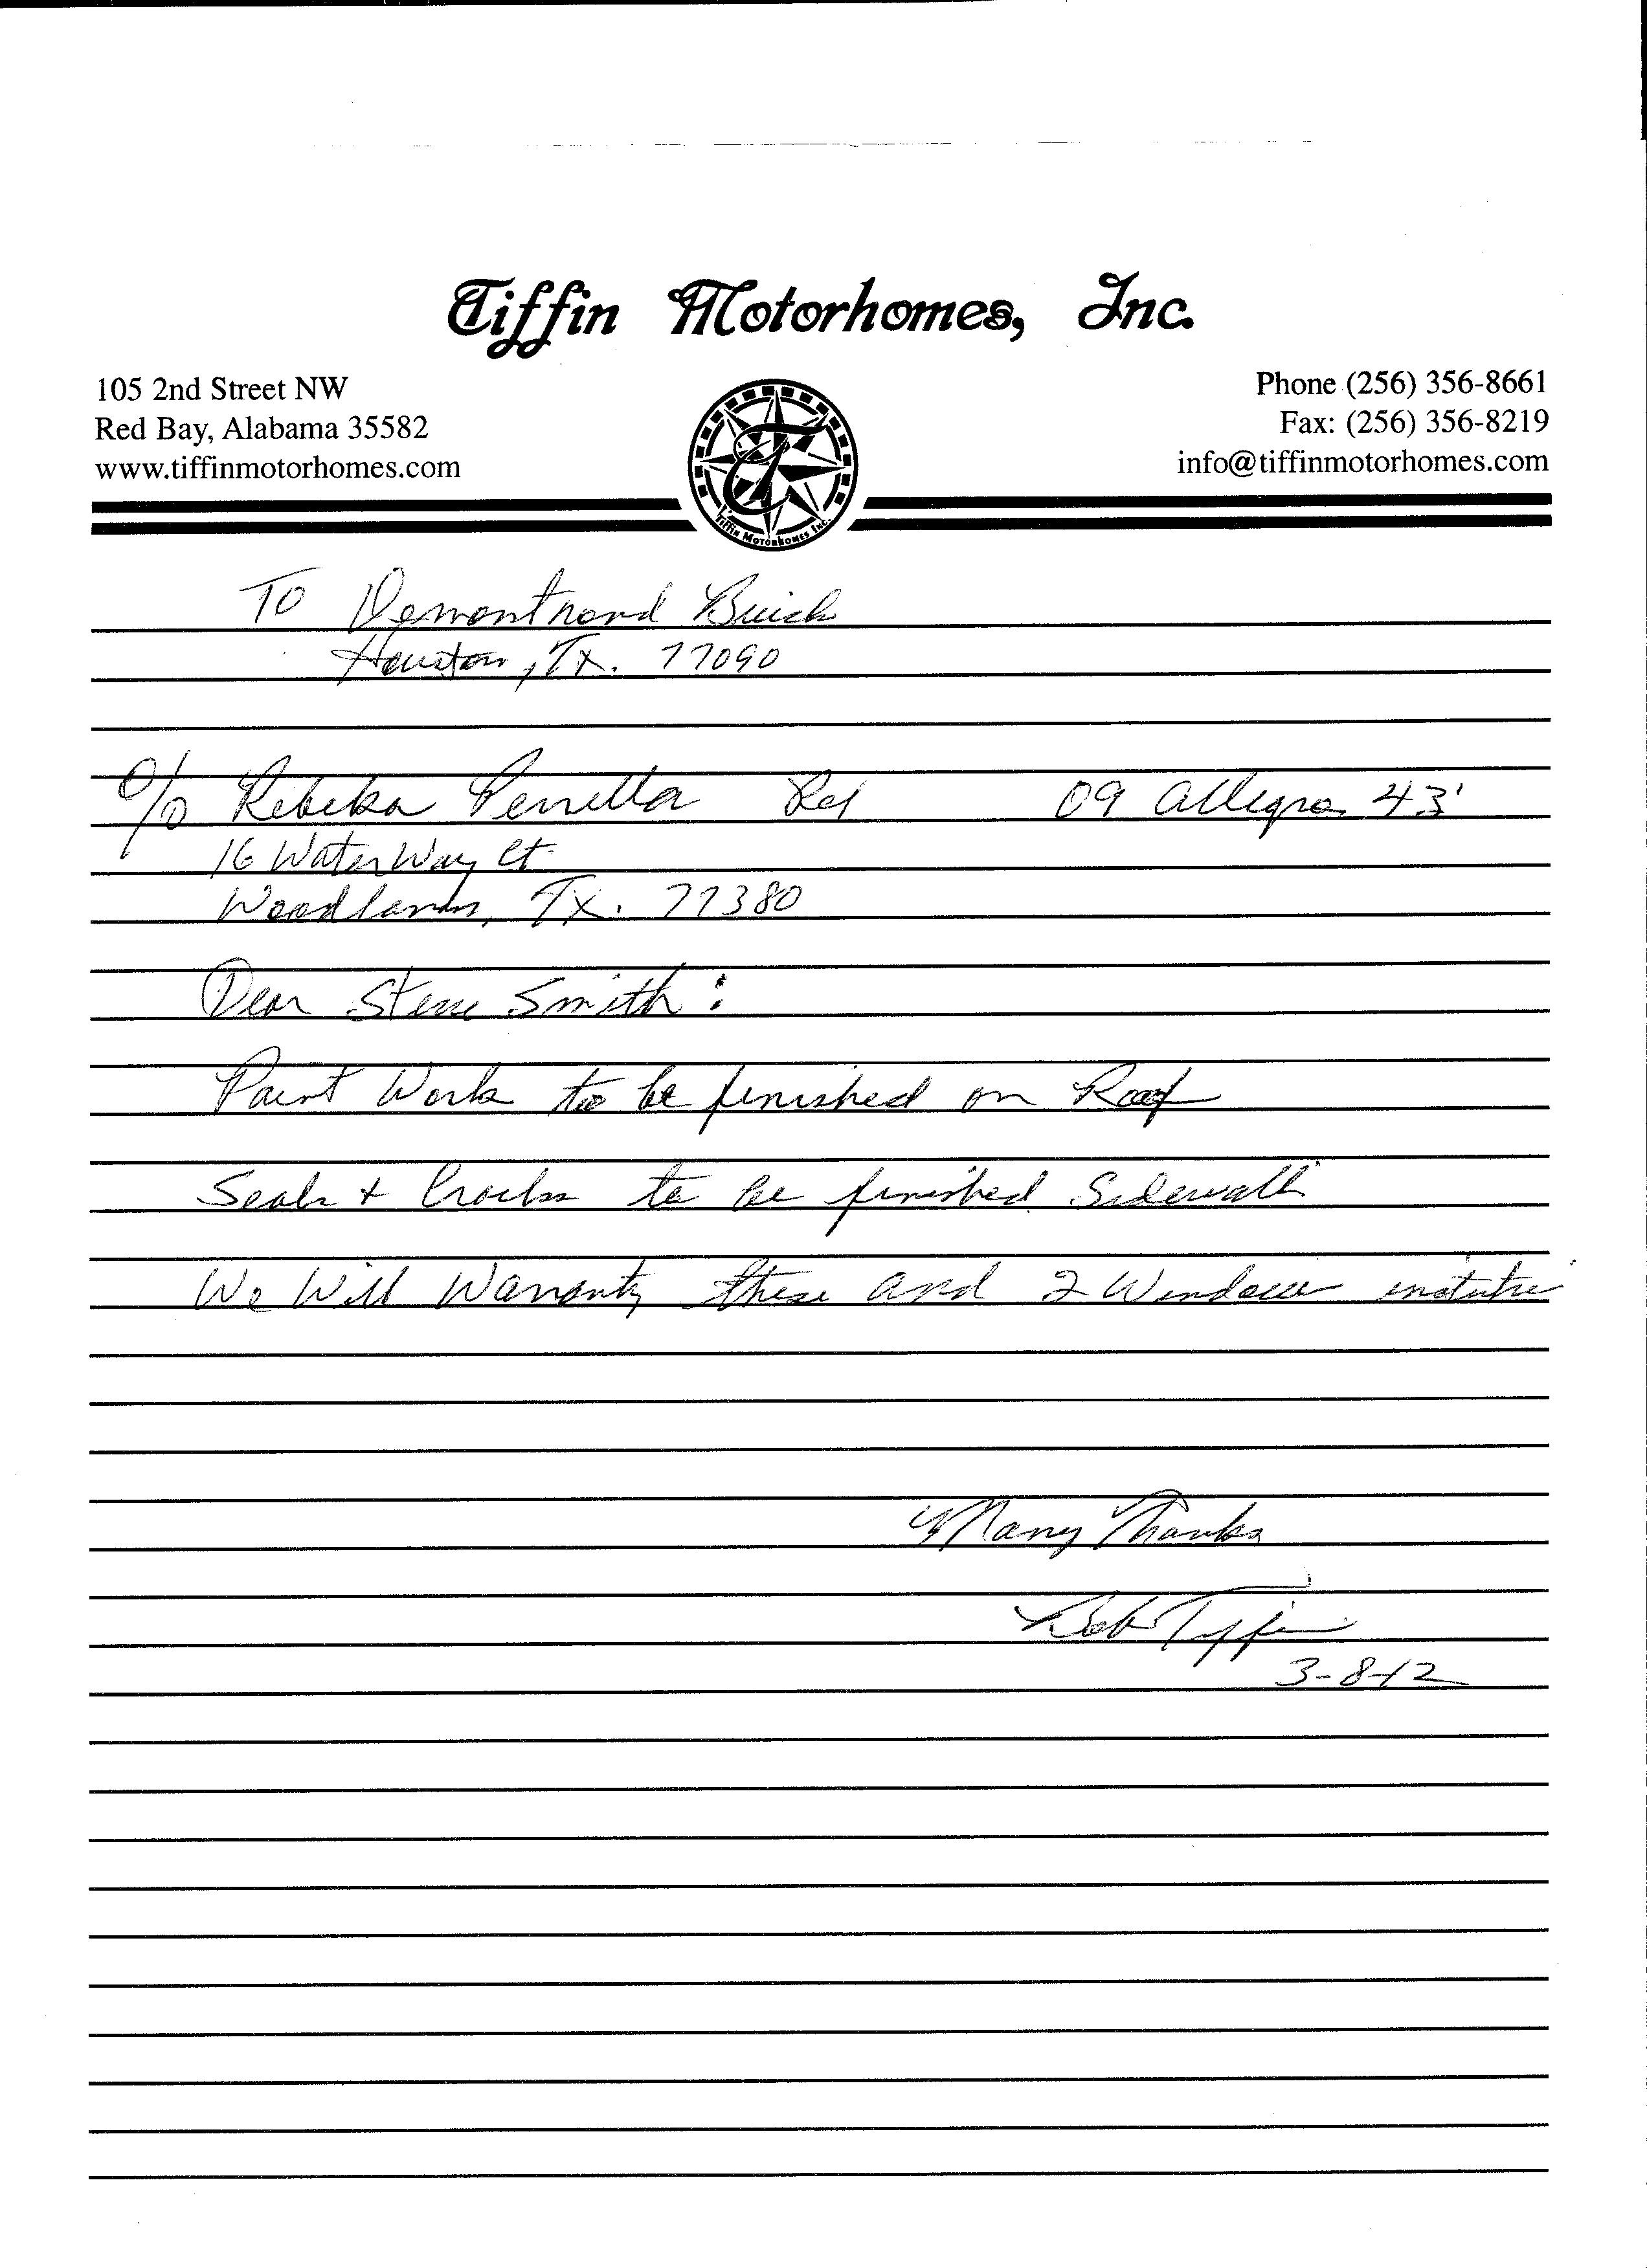 Tiffin Motorhomes, Inc.
105 2nd Street NW
Red Bay, Alabama 35582
www.tiffinmotorhomes.com
Phone (256) 356-8661
Fax: (256) 356-8219
info@tiffinmotorhomes.com
T
Tiffin Motorhomes Inc.
To Demontrond Buick
Houston, Tx. 77090
c/o Rebeka Perrella Ref 09 Allegro 43'
16 WaterWay Ct
Woodlands, Tx. 77380
Dear Steve Smith:
Paint Work to be finished on Roof
Seals + Cracks to be finished Sidewalls
We Will Warranty these and 2 Windows
Many Thanks
Bob Tiffin
3-8-12